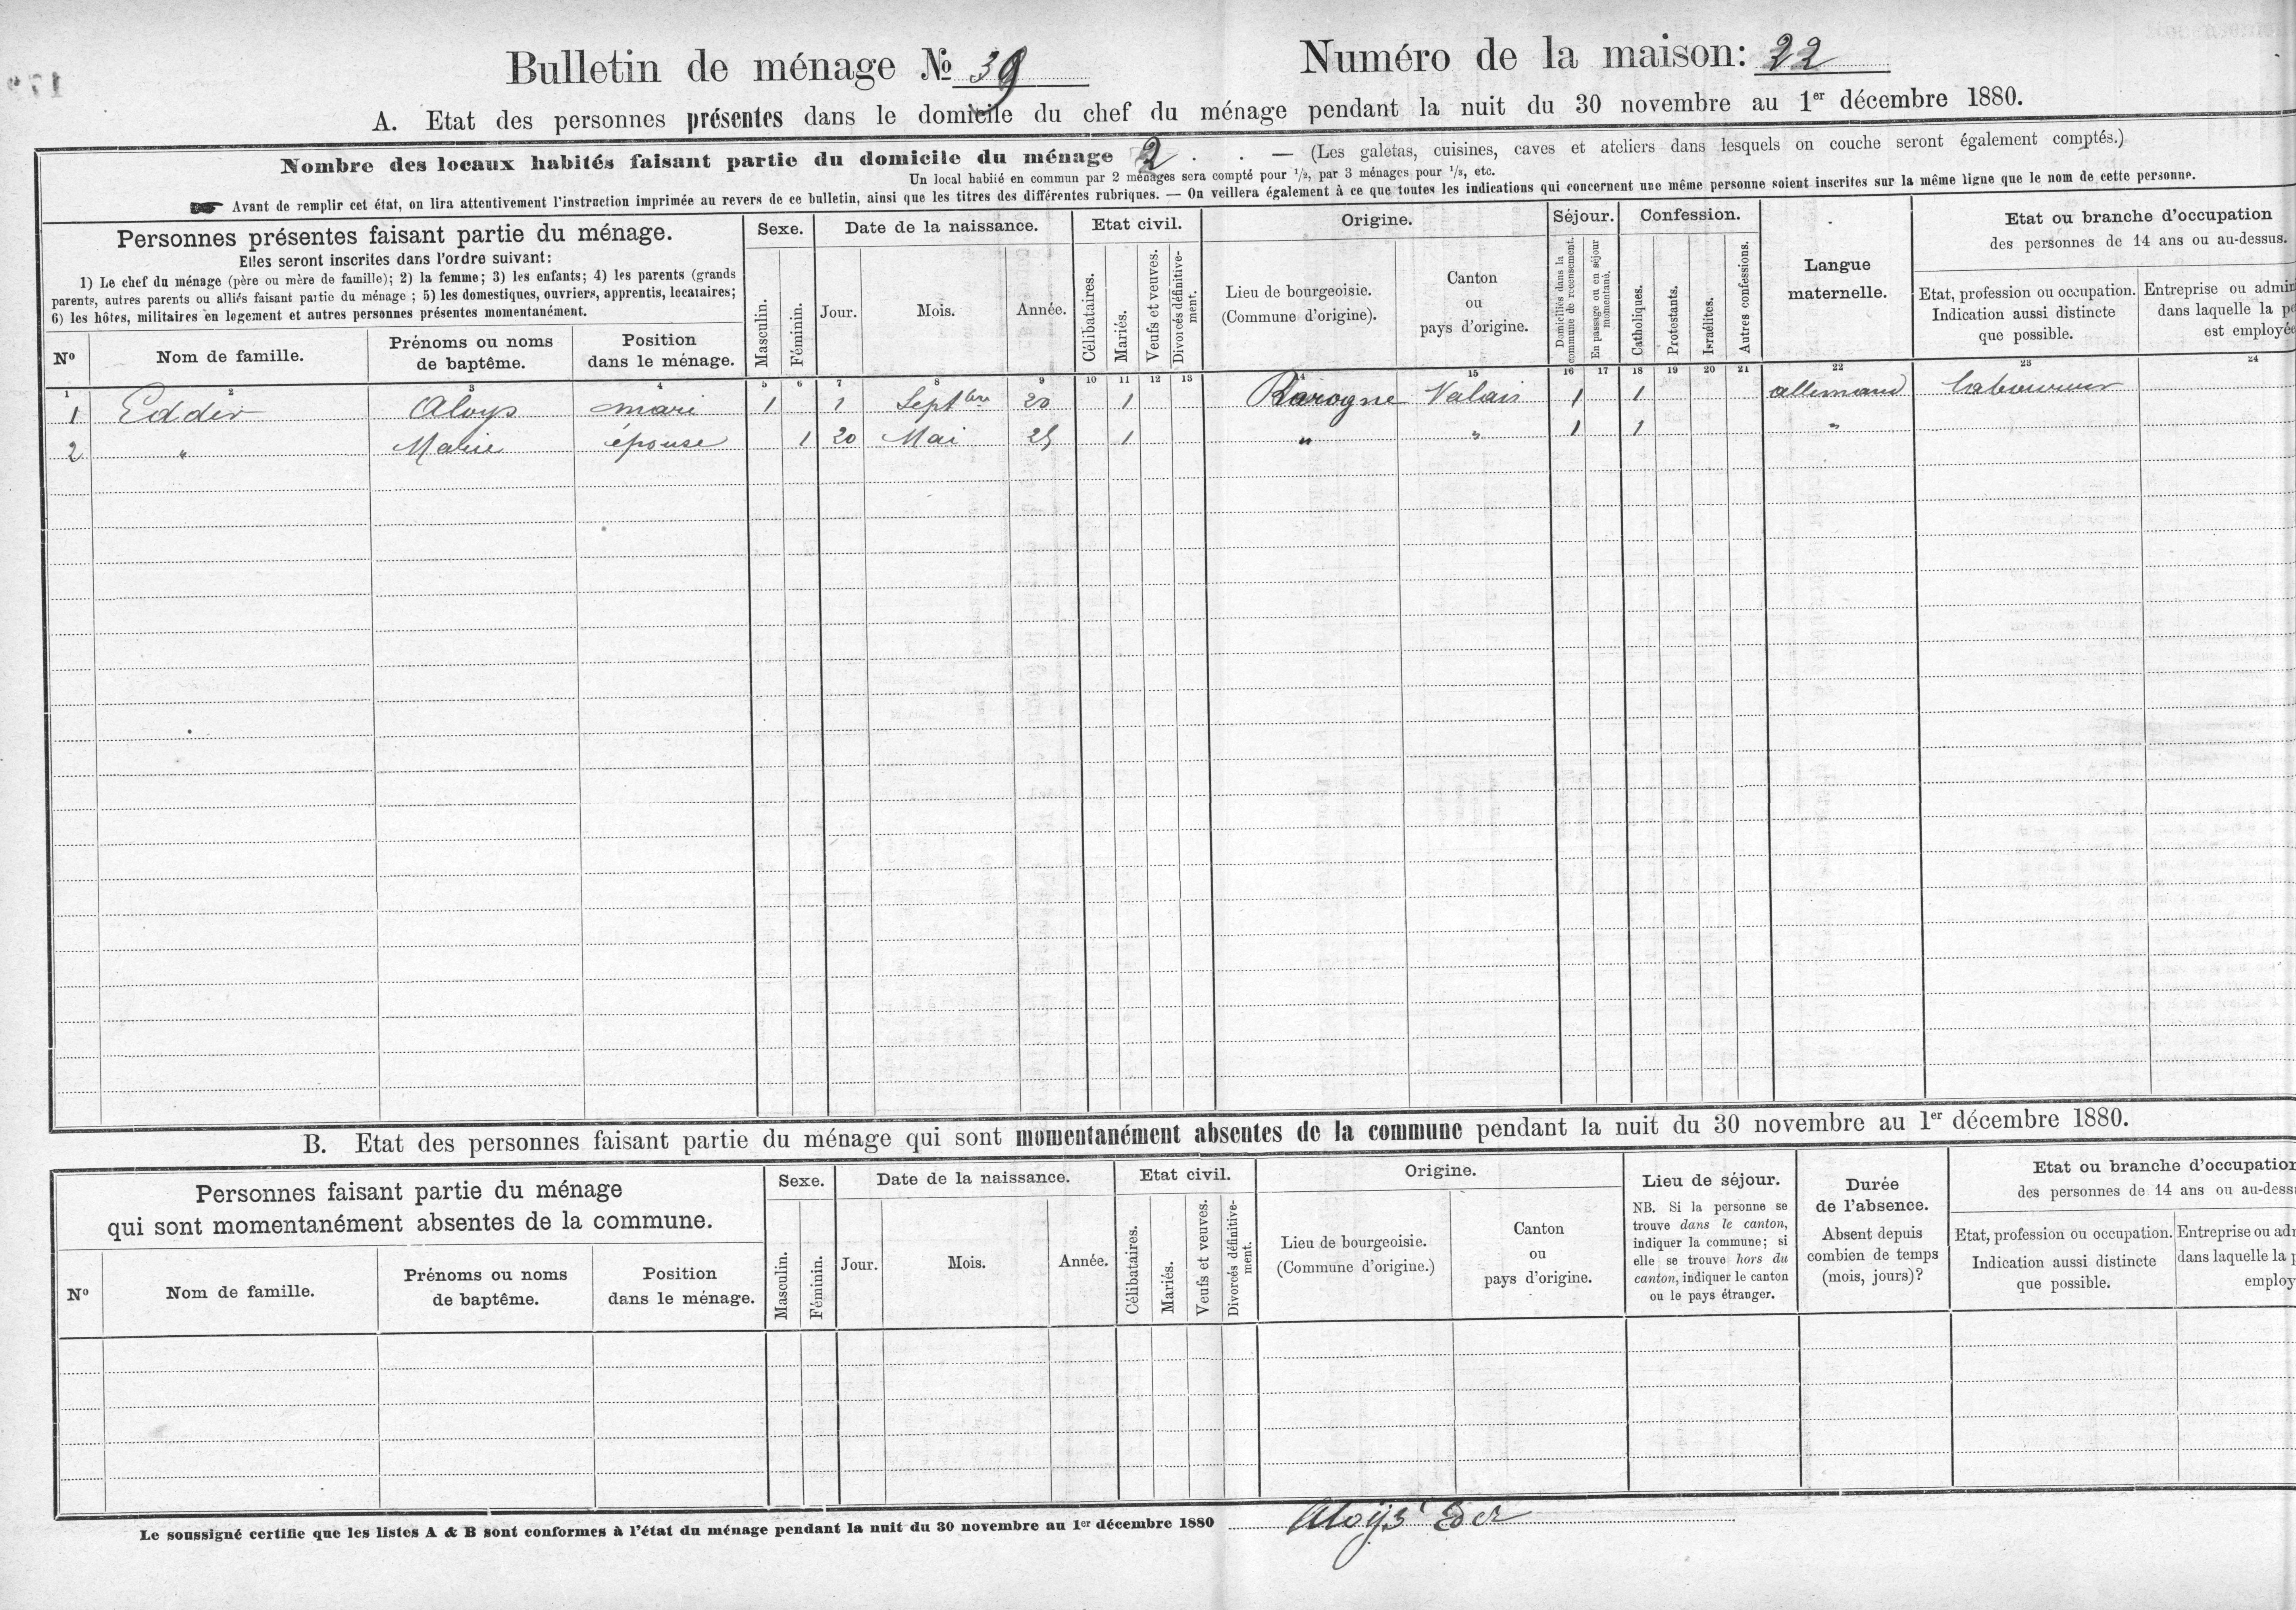 Bulletin de ménage № 39 Numéro de la maison: 22
A. Etat des personnes présentes dans le domicile du chef du ménage pendant la nuit du 30 novembre au 1er décembre 1880.
Nombre des locaux habités faisant partie du domicile du ménage 2 . . — (Les galetas, cuisines, caves et ateliers dans lesquels on couche seront également comptés.)
Un local habité en commun par 2 ménages sera compté pour 1/2, par 3 ménages pour 1/3, etc.
☛ Avant de remplir cet état, on lira attentivement l'instruction imprimée au revers de ce bulletin, ainsi que les titres des différentes rubriques. — On veillera également à ce que toutes les indications qui concernent une même personne soient inscrites sur la même ligne que le nom de cette personne.
Personnes présentes faisant partie du ménage.
Elles seront inscrites dans l'ordre suivant:
1) Le chef du ménage (père ou mère de famille); 2) la femme; 3) les enfants; 4) les parents (grands
parents, autres parents ou alliés faisant partie du ménage; 5) les domestiques, ouvriers, apprentis, locataires;
6) les hôtes, militaires en logement et autres personnes présentes momentanément.
Nº
Nom de famille.
Prénoms ou noms
de baptême.
Position
dans le ménage.
Sexe.
Masculin.
Féminin.
Date de la naissance.
Jour.
Mois.
Année.
Etat civil.
Célibataires.
Mariés.
Veufs et veuves.
Divorcés définitive-
ment.
Origine.
Lieu de bourgeoisie.
(Commune d'origine).
Canton
ou
pays d'origine.
Séjour.
Domiciliés dans la
commune de recensement.
En passage ou en séjour
momentané.
Confession.
Catholiques.
Protestants.
Israélites.
Autres confessions.
Langue
maternelle.
Etat ou branche d'occupation
des personnes de 14 ans ou au-dessus.
Etat, profession ou occupation.
Indication aussi distincte
que possible.
Entreprise ou admin
dans laquelle la pe
est employée
1 2 3 4 5 6 7 8 9 10 11 12 13 14 15 16 17 18 19 20 21 22 23 24
1 Edder Aloys mari 1 1 Septbre 20 1 Rarogne Valais 1 1 allemand laboureur
2 " Marie épouse 1 20 Mai 25 1 " " 1 1 "
B. Etat des personnes faisant partie du ménage qui sont momentanément absentes de la commune pendant la nuit du 30 novembre au 1er décembre 1880.
Personnes faisant partie du ménage
qui sont momentanément absentes de la commune.
Nº
Nom de famille.
Prénoms ou noms
de baptême.
Position
dans le ménage.
Sexe.
Masculin.
Féminin.
Date de la naissance.
Jour.
Mois.
Année.
Etat civil.
Célibataires.
Mariés.
Veufs et veuves.
Divorcés définitive-
ment.
Origine.
Lieu de bourgeoisie.
(Commune d'origine.)
Canton
ou
pays d'origine.
Lieu de séjour.
NB. Si la personne se
trouve dans le canton,
indiquer la commune; si
elle se trouve hors du
canton, indiquer le canton
ou le pays étranger.
Durée
de l'absence.
Absent depuis
combien de temps
(mois, jours)?
Etat ou branche d'occupation
des personnes de 14 ans ou au-dessu
Etat, profession ou occupation.
Indication aussi distincte
que possible.
Entreprise ou adm
dans laquelle la p
employ
Le soussigné certifie que les listes A & B sont conformes à l'état du ménage pendant la nuit du 30 novembre au 1er décembre 1880 Aloys Eder